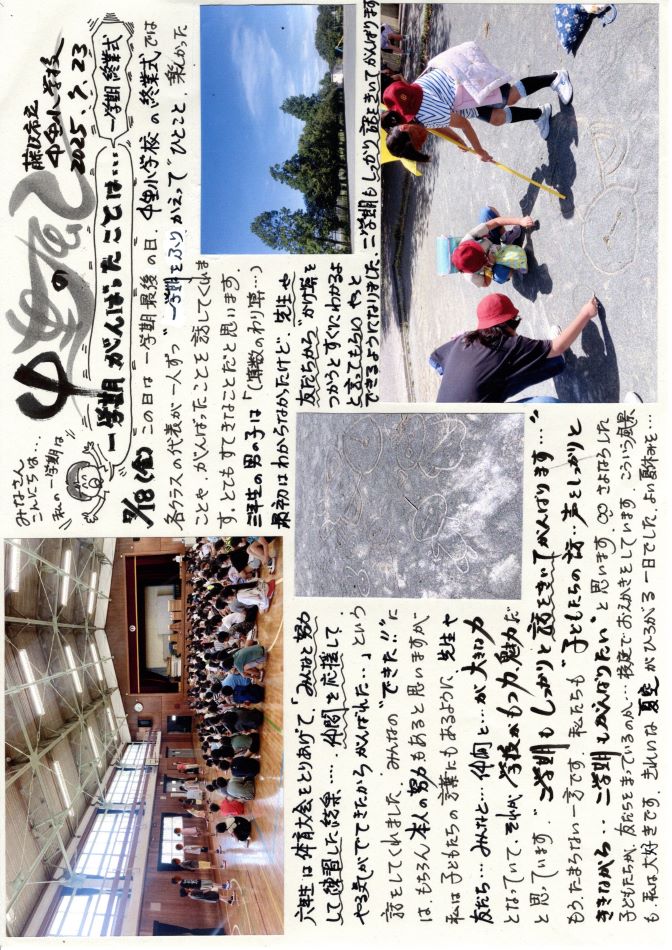 藤沢市立
中里小学校
2025.7.23
みなさん
こんにちは…
私の一学期は
一学期 終業式
一学期 がんばったことは…
7/18(金) この日は一学期最後の日。中里小学校の終業式では
各クラスの代表が一人ずつ“一学期をふりかえって”ひとこと、楽しかった
ことや、がんばったことを話してくれま
す。とてもすてきなことだと思います。
三年生の男の子は「(算数のわり算…)
最初はわからなかったけど、先生や
友だちから“かけ算を
つかうとすぐにわかるよ
と言ってもらいやっと
できるようになりました。二学期もしっかり話をきいてがんばります
六年生は体育大会をとりあげて、「みんなと努力
して練習した結果……仲間を応援して、
やる気がでてきたからがんばれた…」という
話をしてくれました。みんなの“できた!!”に
は、もちろん本人の努力もあると思いますが、
私は子どもたちの言葉にもあるように、先生や
友だち…みんなと…仲間と…が大きな力
となっていて、それが、学校がもつ力、魅力だ
と思っています。“二学期もしっかりと話をきいてがんばります…”
もう、たまらない一言です。私たちも“子どもたちの話・声をしっかりと
ききながら・・二学期もがんばりたい”と思います。∞ さよならした
子どもたちが、友だちをまっているのか…校庭でおえかきをしています。こういう風景
も私は大好きです。きれいな夏空がひろがる一日でした。よい夏休みを…